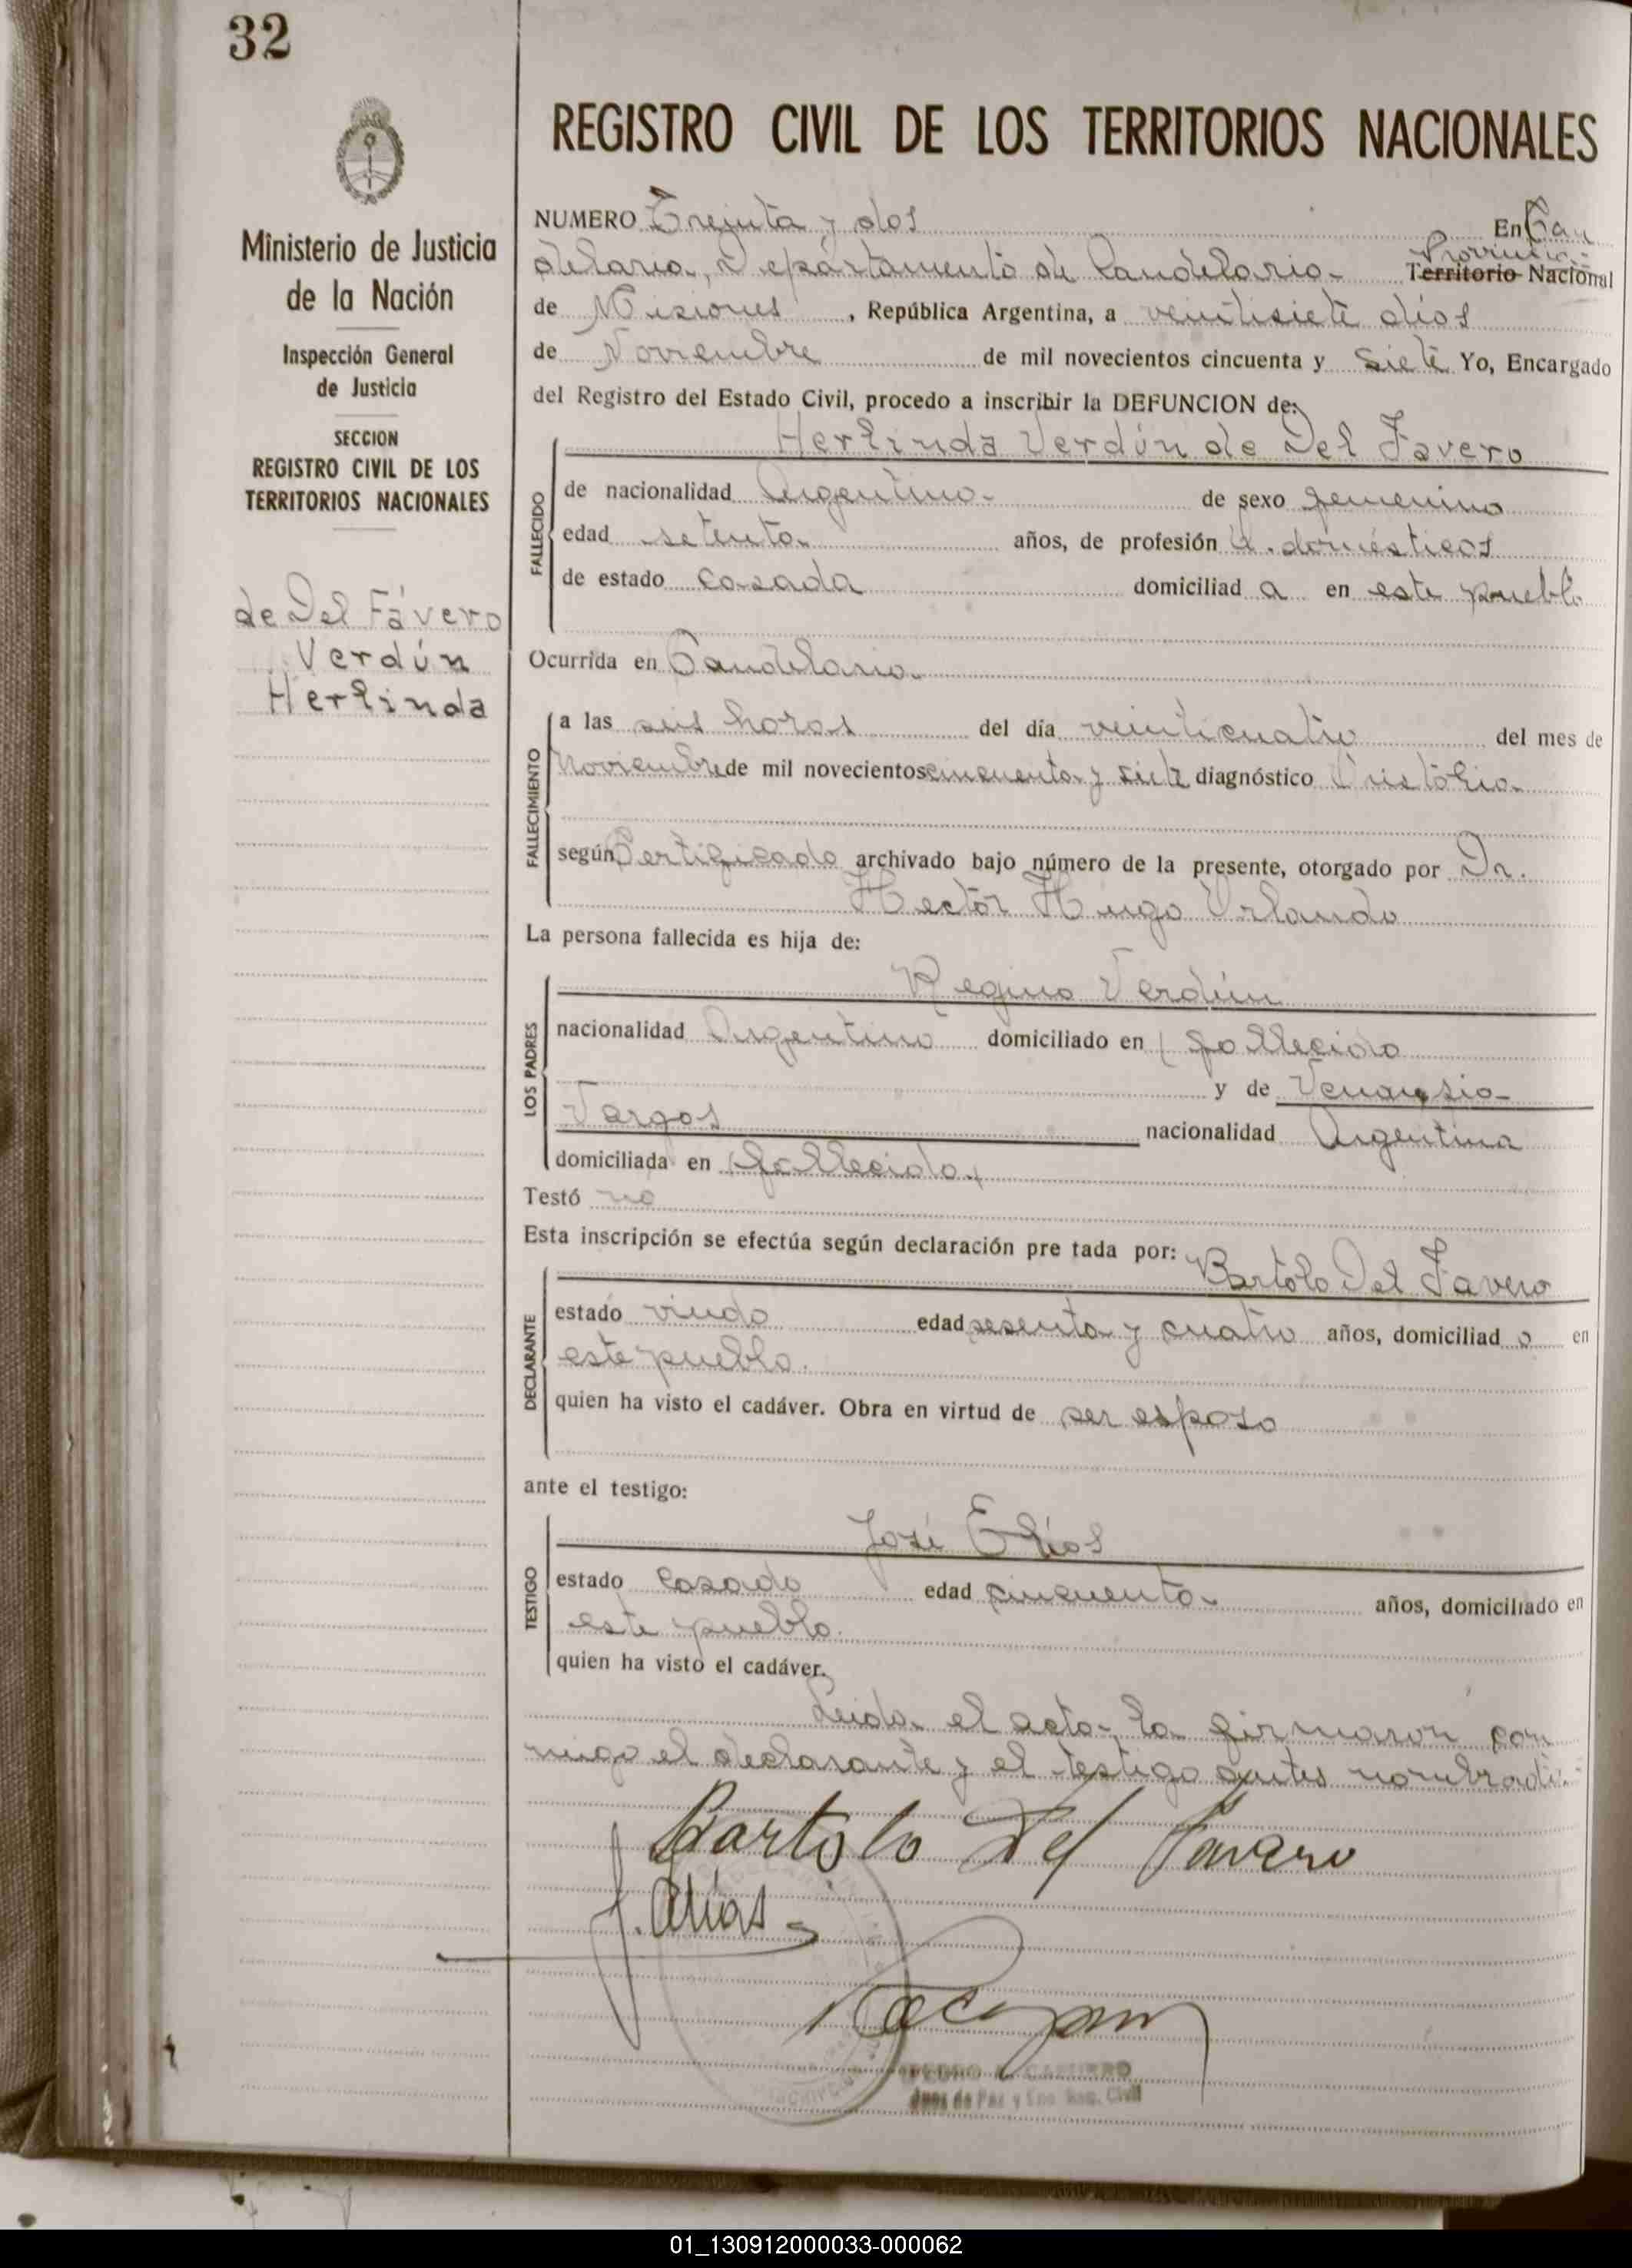 32
REGISTRO CIVIL DE LOS TERRITORIOS NACIONALES
Ministerio de Justicia
de la Nación
Inspección General
de Justicia
SECCION
REGISTRO CIVIL DE LOS
TERRITORIOS NACIONALES
de Del Fávero
Verdún
Herlinda
NUMERO Treinta y dos En Can
Provincia
delaria, Departamento de Candelaria- Territorio Nacional
de Misiones, República Argentina, a veintisiete días
de Noviembre de mil novecientos cincuenta y siete Yo, Encargado
del Registro del Estado Civil, procedo a inscribir la DEFUNCION de:
Herlinda Verdún de Del Favero
FALLECIDO
de nacionalidad Argentina- de sexo femenino
edad setenta años, de profesión Q. domésticos
de estado casada domiciliad a en este pueblo
Ocurrida en Candelaria
FALLECIMIENTO
a las seis horas del día veinticuatro del mes de
Noviembre de mil novecientos cincuenta y siete diagnóstico
según Certificado archivado bajo número de la presente, otorgado por Dr.
Hector Hugo Orlando
La persona fallecida es hija de:
LOS PADRES
Regino Verdún
nacionalidad Argentino domiciliado en (fallecido
y de Venansia
Vargas
nacionalidad Argentina
domiciliada en (fallecida)
Testó no
Esta inscripción se efectúa según declaración pre tada por:
Bartolo Del Favero
DECLARANTE
estado viudo edad sesenta y cuatro años, domiciliad o en
este pueblo.
quien ha visto el cadáver. Obra en virtud de ser esposo
ante el testigo:
TESTIGO
José Elías
estado casado edad cincuenta años, domiciliado en
este pueblo.
quien ha visto el cadáver.
Leida el acta la firmaron con
migo el declarante y el testigo antes nombrado.
Bartolo Del Favero
J. Elías
Juez de Paz y Enc Reg. Civil
01_130912000033-000062